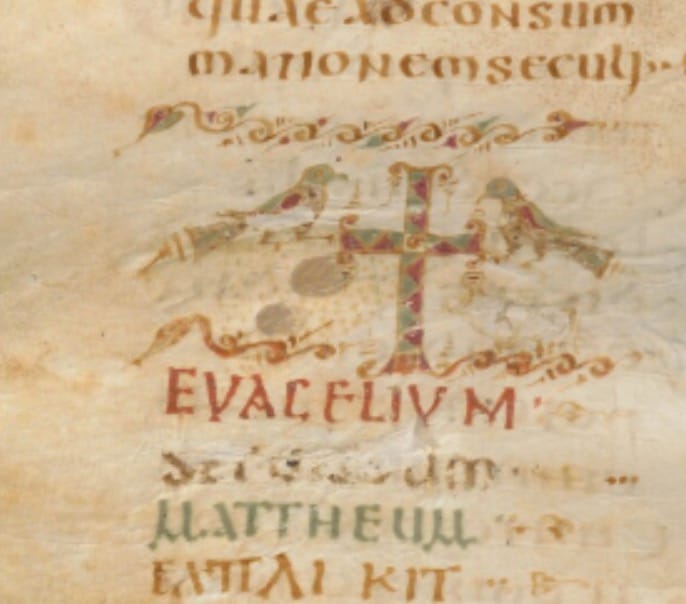 quaeadconsum
mationemseculi
EVAGELIVM
secundum
MATTHEUM
EXΠΛI KIT